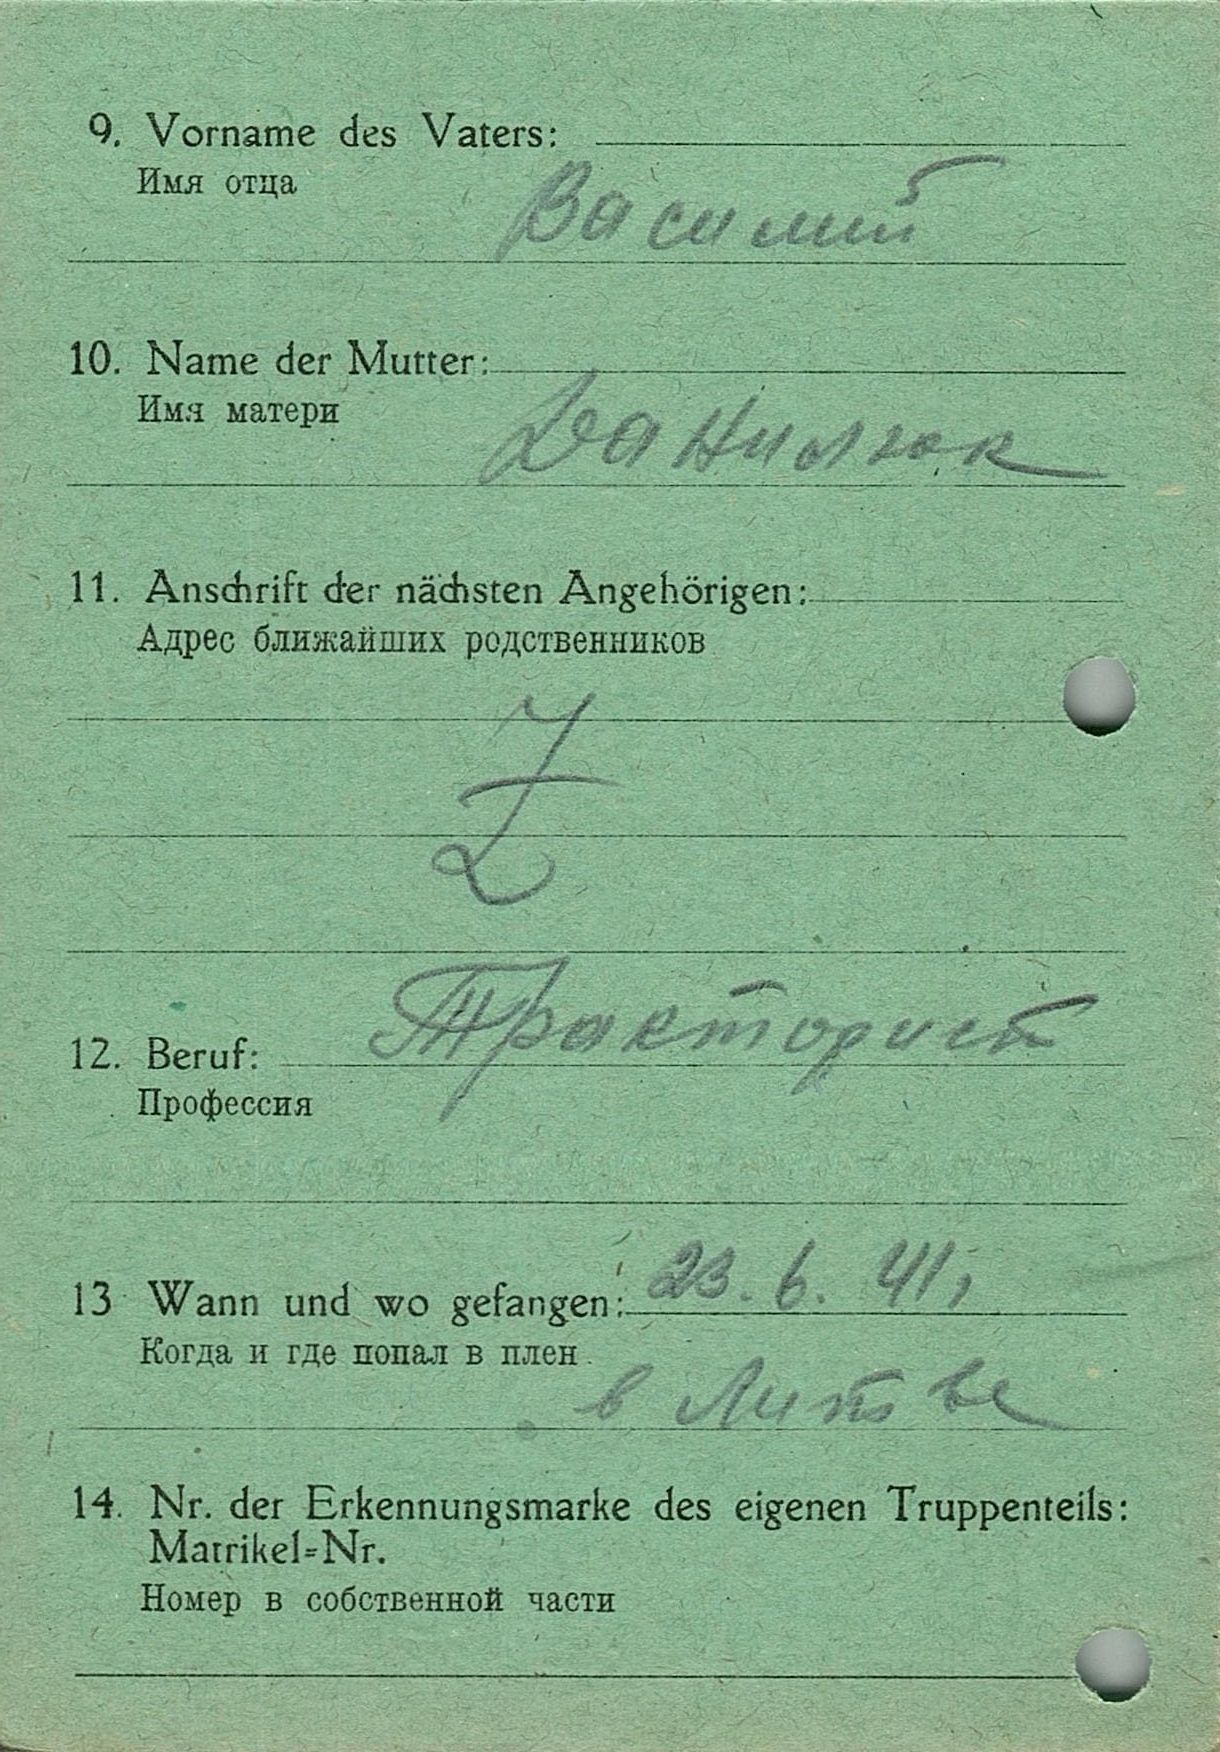 9. Vorname des Vaters:
Имя отца
Василий
10. Name der Mutter:
Имя матери
Данилюк
11. Anschrift der nächsten Angehörigen:
Адрес ближайших родственников
Z
Тракторист
12. Beruf:
Профессия
13 Wann und wo gefangen: 23. 6. 41,
Когда и где попал в плен
в Литве
14. Nr. der Erkennungsmarke des eigenen Truppenteils:
Matrikel=Nr.
Номер в собственной части